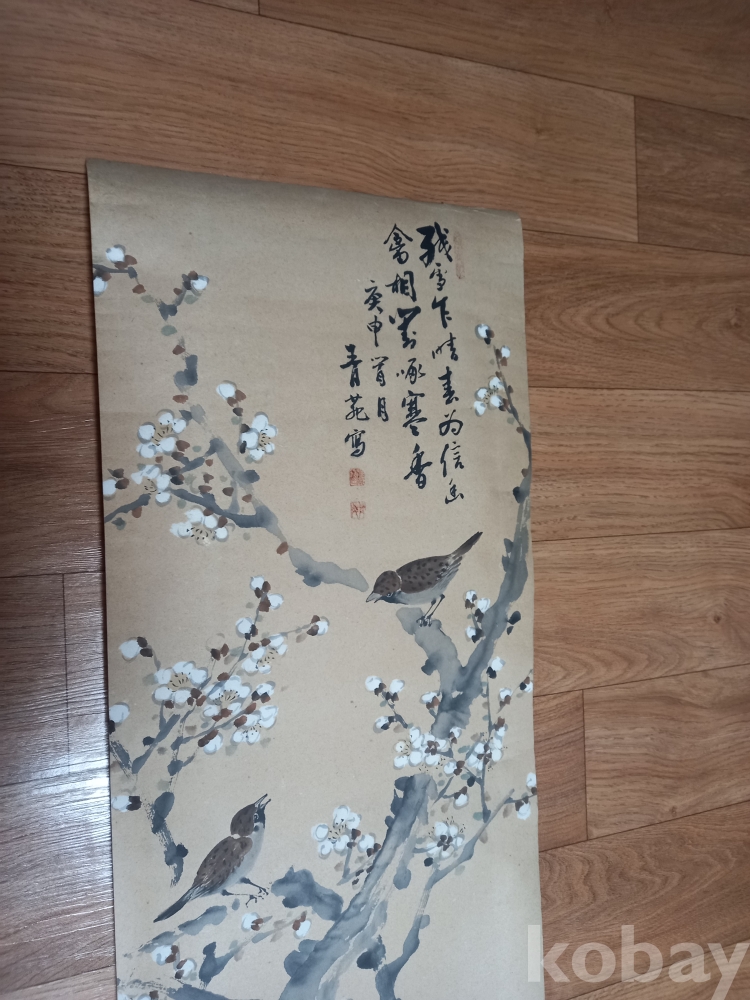 残雪乍晴春为信幽
禽相對啄寒香
庚申 月
青苑寫
kobay